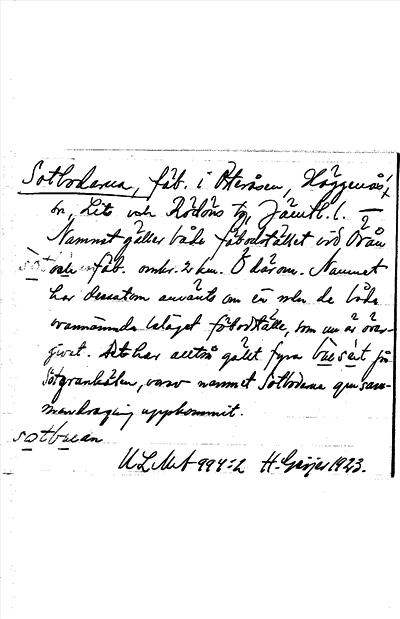 Sotbodarna, fäb. i Österåsen, Häggenås
sn, Lits och Rödöns tg, Jämtl. l. —
Namnet gäller både fäbodstället vid Övån
och fäb. omkr. 2 km. Ö därom. Namnet
har dessutom använts om en mellan de båda
ovannämnda belägen fäbodställe, som nu är över-
givet. Det har alltså gällt fyra på
Sötgranhåsen, varav namnet Sotbodarna gm sam-
mandragning uppkommit.
sotbuan
ULMA 994:2 H. Geijer 1923.